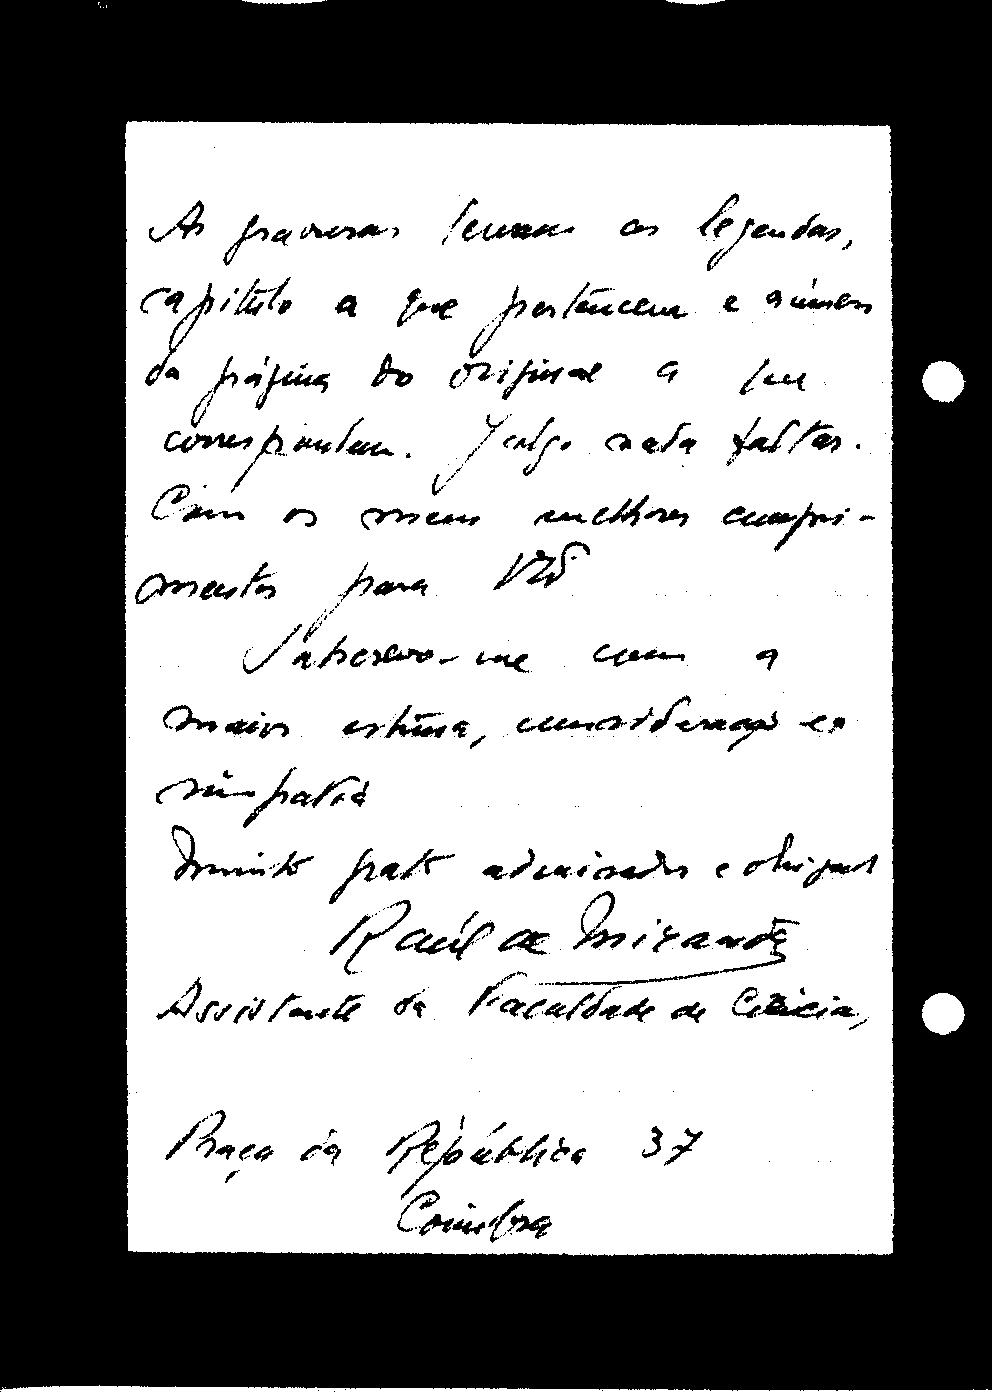 As gravuras levam as legendas,
capítulo a que pertencem e número
da página do original a que
correspondem. Julgo nada faltar.
Com os meus melhores cumpri-
mentos para
Subscrevo-me com a
maior estima, consideração e
simpatia
Muito grato admirador e obrigado
Raúl de Miranda
Assistente da Faculdade de Ciências,
Praça da República 37
Coimbra